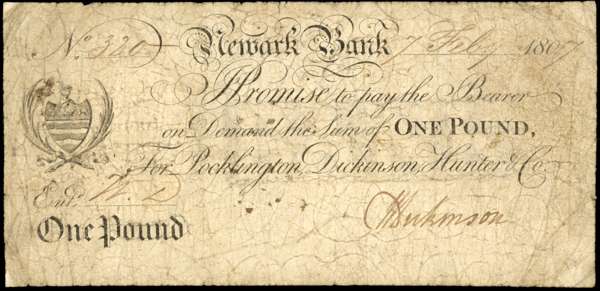 No. 320 Newark Bank 7 Feby 1807
I Promise to pay the Bearer
on Demand the Sum of ONE POUND,
For Pocklington, Dickinson, Hunter & Co.
Entd.
One Pound
Dickinson